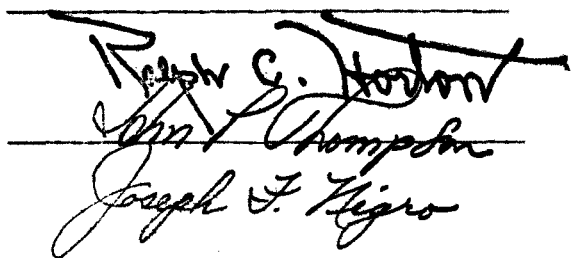 Ralph C. Horton
John P Thompson
Joseph F. Nigro